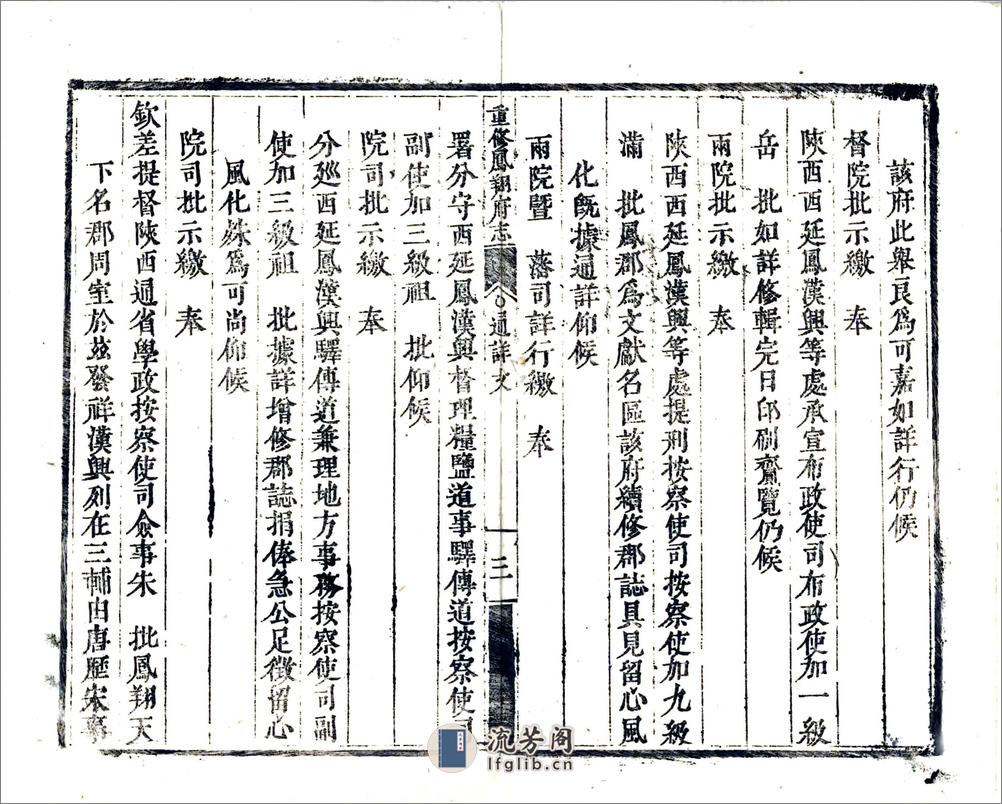 該府此舉良爲可嘉如詳行仍候
督院批示繳 奉
陝西西延鳳漢興等處承宣布政使司布政使加一級
岳 批如詳修輯完日印刷齎覽仍候
兩院批示繳 奉
陝西西延鳳漢興等處提刑按察使司按察使加九級
滿 批鳳郡爲文獻名區該府續修郡誌具見留心風
化旣據通詳仰候
兩院暨 藩司詳行繳 奉
署分守西延鳳漢興督理糧鹽道事驛傳道按察使司
副使加三級祖 批仰候
院司批示繳 奉
重修鳳翔府志 通詳文 三
分廵西延鳳漢興驛傳道兼理地方事務按察使司副
使加三級祖 批據詳增修郡誌捐俸急公足徵留心
風化殊爲可尚仰候
院司批示繳 奉
欽差提督陝西通省學政按察使司僉事朱 批鳳翔天
下名郡周室於兹發祥漢興列在三輔由唐歷宋事
流芳阁
lfglib.cn